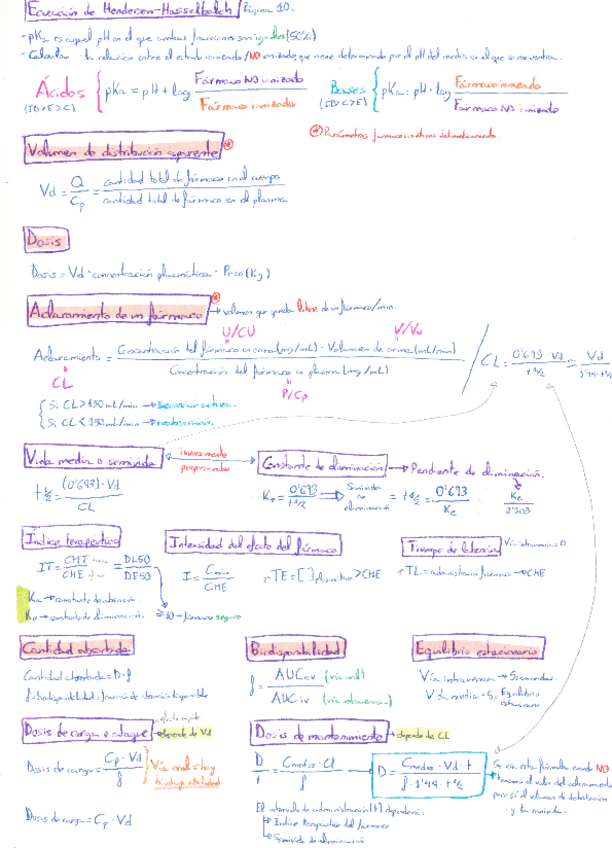 Ecuación de Henderson-Hasselbalch / Página 10.
- pKa es aquel pH en el que ambas fracciones son iguales (50%)
- Calcular la relación entre el estado ionizado/NO ionizado, que viene determinado por el pH del medio en el que se encuentra.
Ácidos (ID>E>C) { pKa = pH + log Fármaco NO ionizado / Fármaco ionizado
Bases (ID>C>E) { pKa = pH + log Fármaco ionizado / Fármaco NO ionizado
* Parámetros farmacocinéticos del medicamento.
Volumen de distribución aparente *
Vd = Q / Cp = cantidad total de fármaco en el cuerpo / cantidad total de fármaco en el plasma
Dosis
Dosis = Vd · concentración plasmática · Peso (Kg)
Aclaramiento de un fármaco * → volumen que queda libre de un fármaco/min.
U/CU V/Vu
Aclaramiento = Concentración del fármaco en orina (mg/mL) · Volumen de orina (mL/min) / Concentración del fármaco en plasma (mg/mL)
CL P/Cp
/ CL = 0'693 · Vd / t 1/2 = Vd / 1'44 · t 1/2
Si CL > 130 mL/min → Secreción activa.
Si CL < 130 mL/min → reabsorción.
Vida media o semivida
inversamente proporcionales
Constante de eliminación → Pendiente de eliminación.
t 1/2 = (0'693) · Vd / CL
Ke = 0'693 / t 1/2 → Semivida de eliminación = t 1/2 = 0'693 / Ke
Ke / 2'303
Índice terapéutico
Intensidad del efecto del fármaco
Tiempo de latencia Vía intravenosa 0
IT = CMT / CME = DL50 / DE50
I = Cmáx / CME
TE = [ ] plasmática > CME
TL = administrar fármaco → CME
Ka → constante de absorción.
Ke → constante de eliminación.
≥10 → fármaco seguro
Cantidad absorbida
Biodisponibilidad
Equilibrio estacionario
Cantidad absorbida = D · f
f = biodisponibilidad = fracción de absorción disponible.
f = AUC ev (vía oral) / AUC iv (vía intravenosa)
Vía intravenosa → 5 semividas.
Vida media · 5 = Equilibrio estacionario
efecto rápido
Dosis de carga o ataque → depende de Vd
Dosis de mantenimiento → depende de CL
Dosis de carga = Cp · Vd / f
Vía oral → hay biodisponibilidad
D / t = Cmedss · Cl / f → D = Cmedss · Vd · t / f · 1'44 · t 1/2
Se usa esta fórmula cuando NO tenemos el valor del aclaramiento pero sí el volumen de distribución y la semivida.
Dosis de carga = Cp · Vd
El intervalo de administración (t) dependerá:
→ Índice terapéutico del fármaco
→ Semivida de eliminación